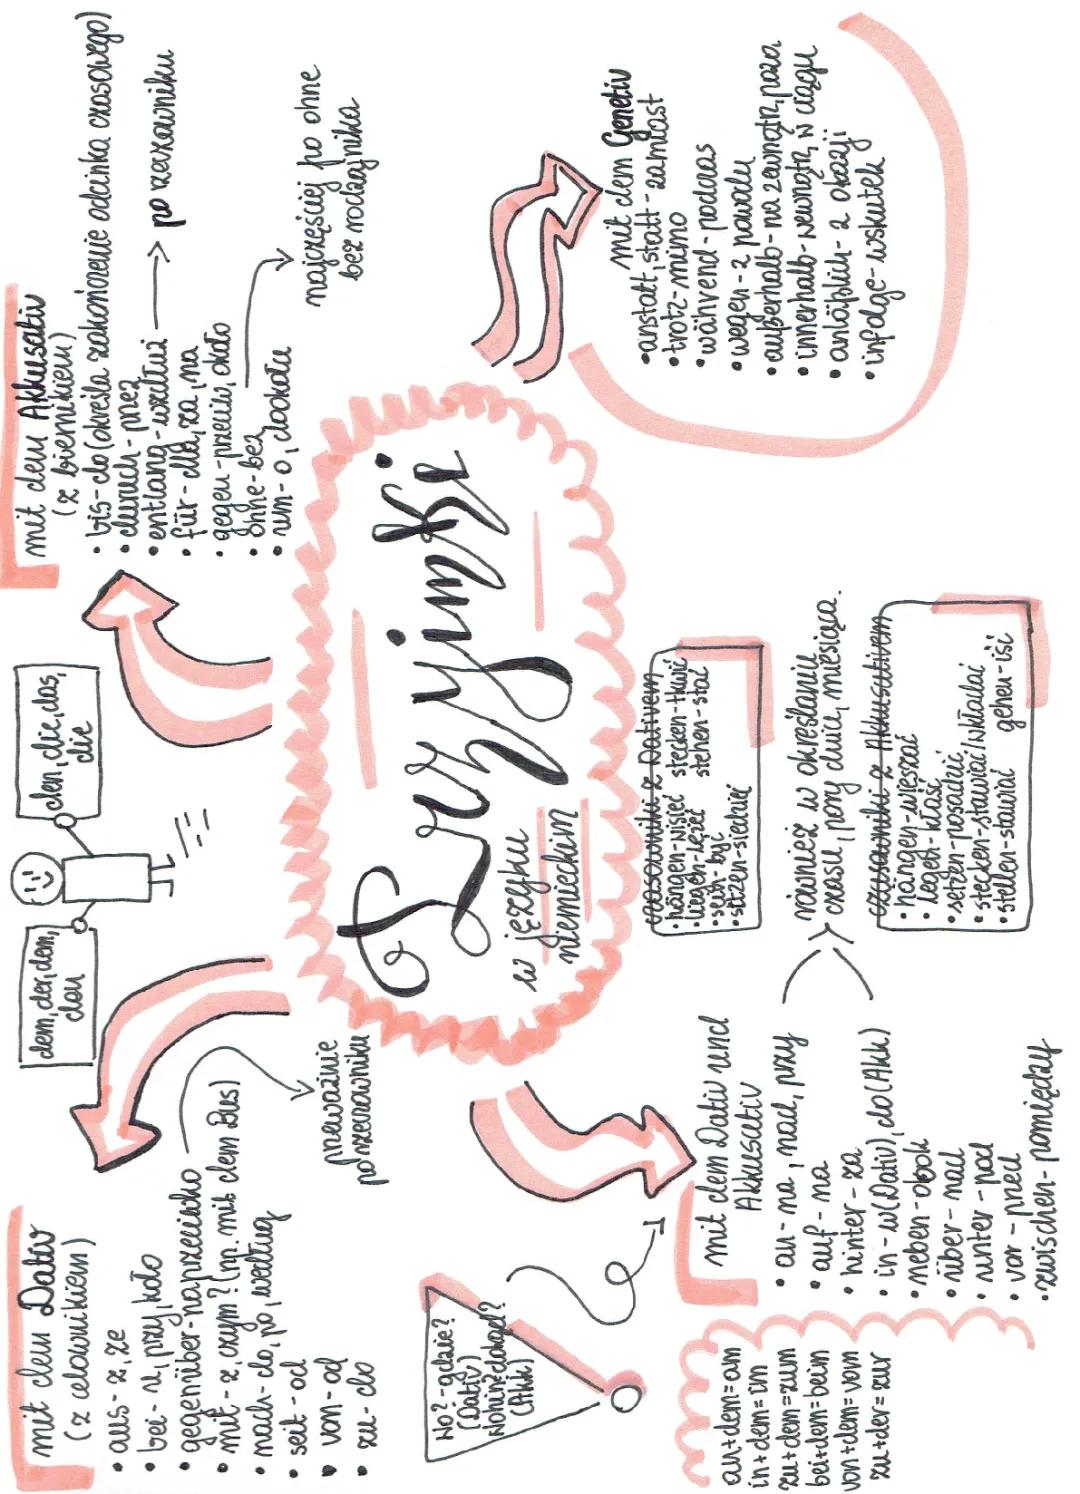 Przyimki
w języku
niemieckim
mit dem Dativ
(z celownikiem)
• aus - z, ze
• bei - u, przy, koło
• gegenüber - naprzeciwko
• mit - z, czym? (np. mit dem Bus)
• nach - do, po, według
• seit - od
• von - od
• zu - do
przeważnie
po rzeczowniku
dem, der, dem,
den
den, die, das,
die
mit dem Akkusativ
(z biernikiem)
• bis - do (określa zakończenie odcinka czasowego)
• durch - przez
• entlang - wzdłuż → po rzeczowniku
• für - dla, za, na
• gegen - przeciw, około
• ohne - bez
• um - o, dookoła
najczęściej po ohne
bez rodzajnika
Wo? - gdzie?
(Dativ)
Wohin? dokąd?
(Akk)
an+dem=am
in+dem=im
zu+dem=zum
bei+dem=beim
von+dem=vom
zu+der=zur
mit dem Dativ und
Akkusativ
• an - na, nad, przy
• auf - na
• hinter - za
• in - w (Dativ), do (Akk)
• neben - obok
• über - nad
• unter - pod
• vor - przed
• zwischen - pomiędzy
również w określaniu
czasu, pory dnia, miesiąca.
czasowniki z Dativem
• hängen - wisieć stecken - tkwić
• liegen - leżeć stehen - stać
• sein - być
• sitzen - siedzieć
czasowniki z Akkusativem
• hängen - wieszać
• legen - kłaść
• setzen - posadzić
• stecken - stawiać/wkładać
• stellen - stawiać gehen - iść
mit dem Genetiv
• anstatt, statt - zamiast
• trotz - mimo
• während - podczas
• wegen - z powodu
• außerhalb - na zewnątrz, poza
• innerhalb - wewnątrz, w ciągu
• anläßlich - z okazji
• infolge - wskutek